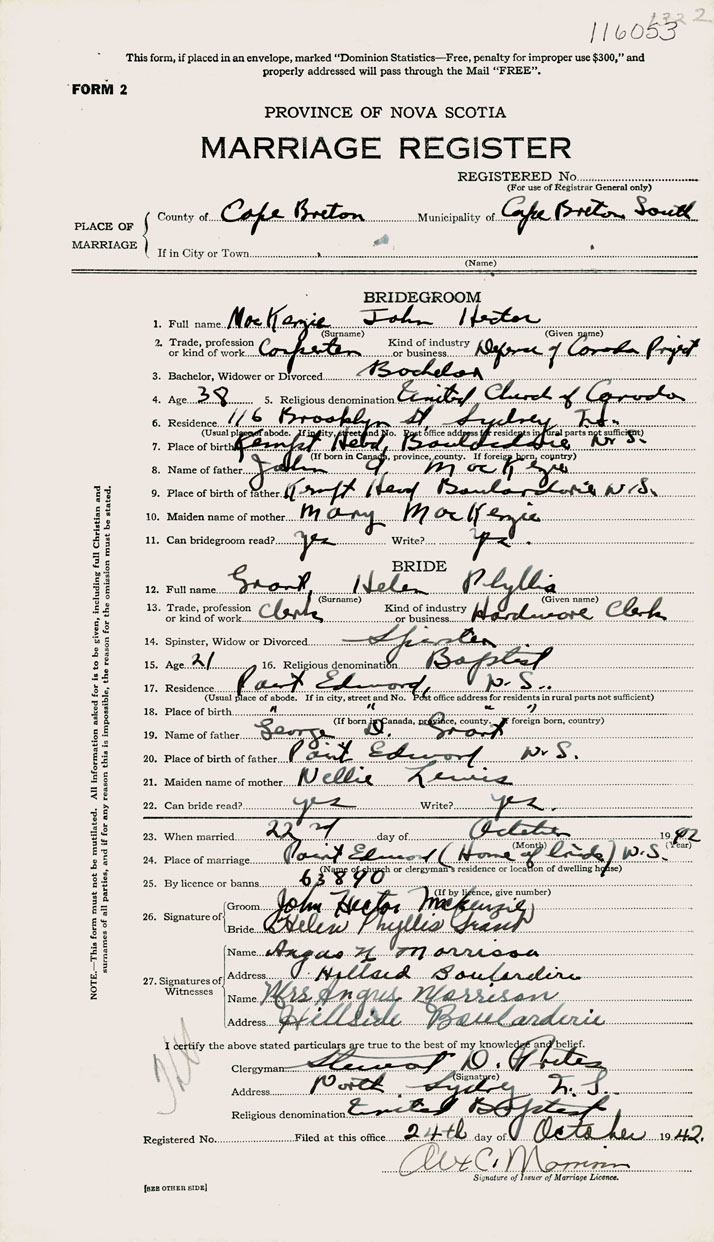 116053 1322
This form, if placed in an envelope, marked “Dominion Statistics—Free, penalty for improper use $300,” and
properly addressed will pass through the Mail “FREE”.
FORM 2
PROVINCE OF NOVA SCOTIA
MARRIAGE REGISTER
REGISTERED No.
(For use of Registrar General only)
PLACE OF MARRIAGE
County of Cape Breton Municipality of Cape Breton South
If in City or Town
(Name)
BRIDEGROOM
1. Full name MacKenzie John Hector
(Surname) (Given name)
2. Trade, profession or kind of work Carpenter Kind of industry or business Defense of Canada Project
3. Bachelor, Widower or Divorced Bachelor
4. Age 38 5. Religious denomination United Church of Canada
6. Residence 116 Brooklyn St, Sydney N.S.
(Usual place of abode. If in city, street and No. Post office address for residents in rural parts not sufficient)
7. Place of birth Kempt Head, Boularderie N.S.
(If born in Canada, province, county. If foreign born, country)
8. Name of father John A MacKenzie
9. Place of birth of father Kempt Head Boularderie N.S.
10. Maiden name of mother Mary MacKenzie
11. Can bridegroom read? yes Write? yes.
BRIDE
12. Full name Grant Helen Phyllis
(Surname) (Given name)
13. Trade, profession or kind of work Clerk Kind of industry or business Hardware Clerk
14. Spinster, Widow or Divorced Spinster
15. Age 21 16. Religious denomination Baptist
17. Residence Point Edward, N.S.
(Usual place of abode. If in city, street and No. Post office address for residents in rural parts not sufficient)
18. Place of birth " " " "
(If born in Canada, province, county. If foreign born, country)
19. Name of father George D. Grant
20. Place of birth of father Point Edward N.S.
21. Maiden name of mother Nellie Lewis
22. Can bride read? yes Write? yes.
23. When married 22nd day of October 1942
(Month) (Year)
24. Place of marriage Point Edward (Home of bride) N.S.
(Name of church or clergyman's residence or location of dwelling house)
25. By licence or banns 63890
(If by licence, give number)
26. Signature of Groom John Hector McKenzie
Bride Helen Phyllis Grant
27. Signatures of Witnesses
Name Angus N Morrison
Address Hillsid Boularderie
Name Mrs Angus Morrison
Address Hillside Boularderie
I certify the above stated particulars are true to the best of my knowledge and belief.
Clergyman Stewart D.
(Signature)
Address North Sydney N.S.
Religious denomination United Baptist
Registered No. Filed at this office 24th day of October 1942.
Alex C. Morrison
Signature of Issuer of Marriage Licence.
[SEE OTHER SIDE]
NOTE.—This form must not be mutilated. All information asked for is to be given, including full Christian and
surnames of all parties, and if for any reason this is impossible, the reason for the omission must be stated.